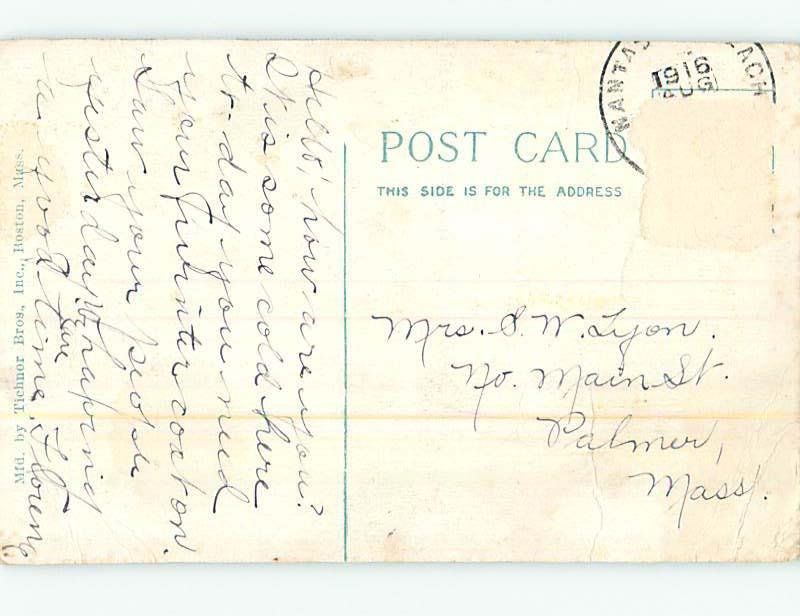 Hello, how are you?
It is some cold here
to-day you need
your winter coat on.
Saw your people
yesterday. We are having
a good time.
POST CARD
THIS SIDE IS FOR THE ADDRESS
1916
AUG
Mrs. S. W. Lyon.
No. Main St.
Palmer,
Mass.
Mfd. by Tichnor Bros., Inc., Boston, Mass.